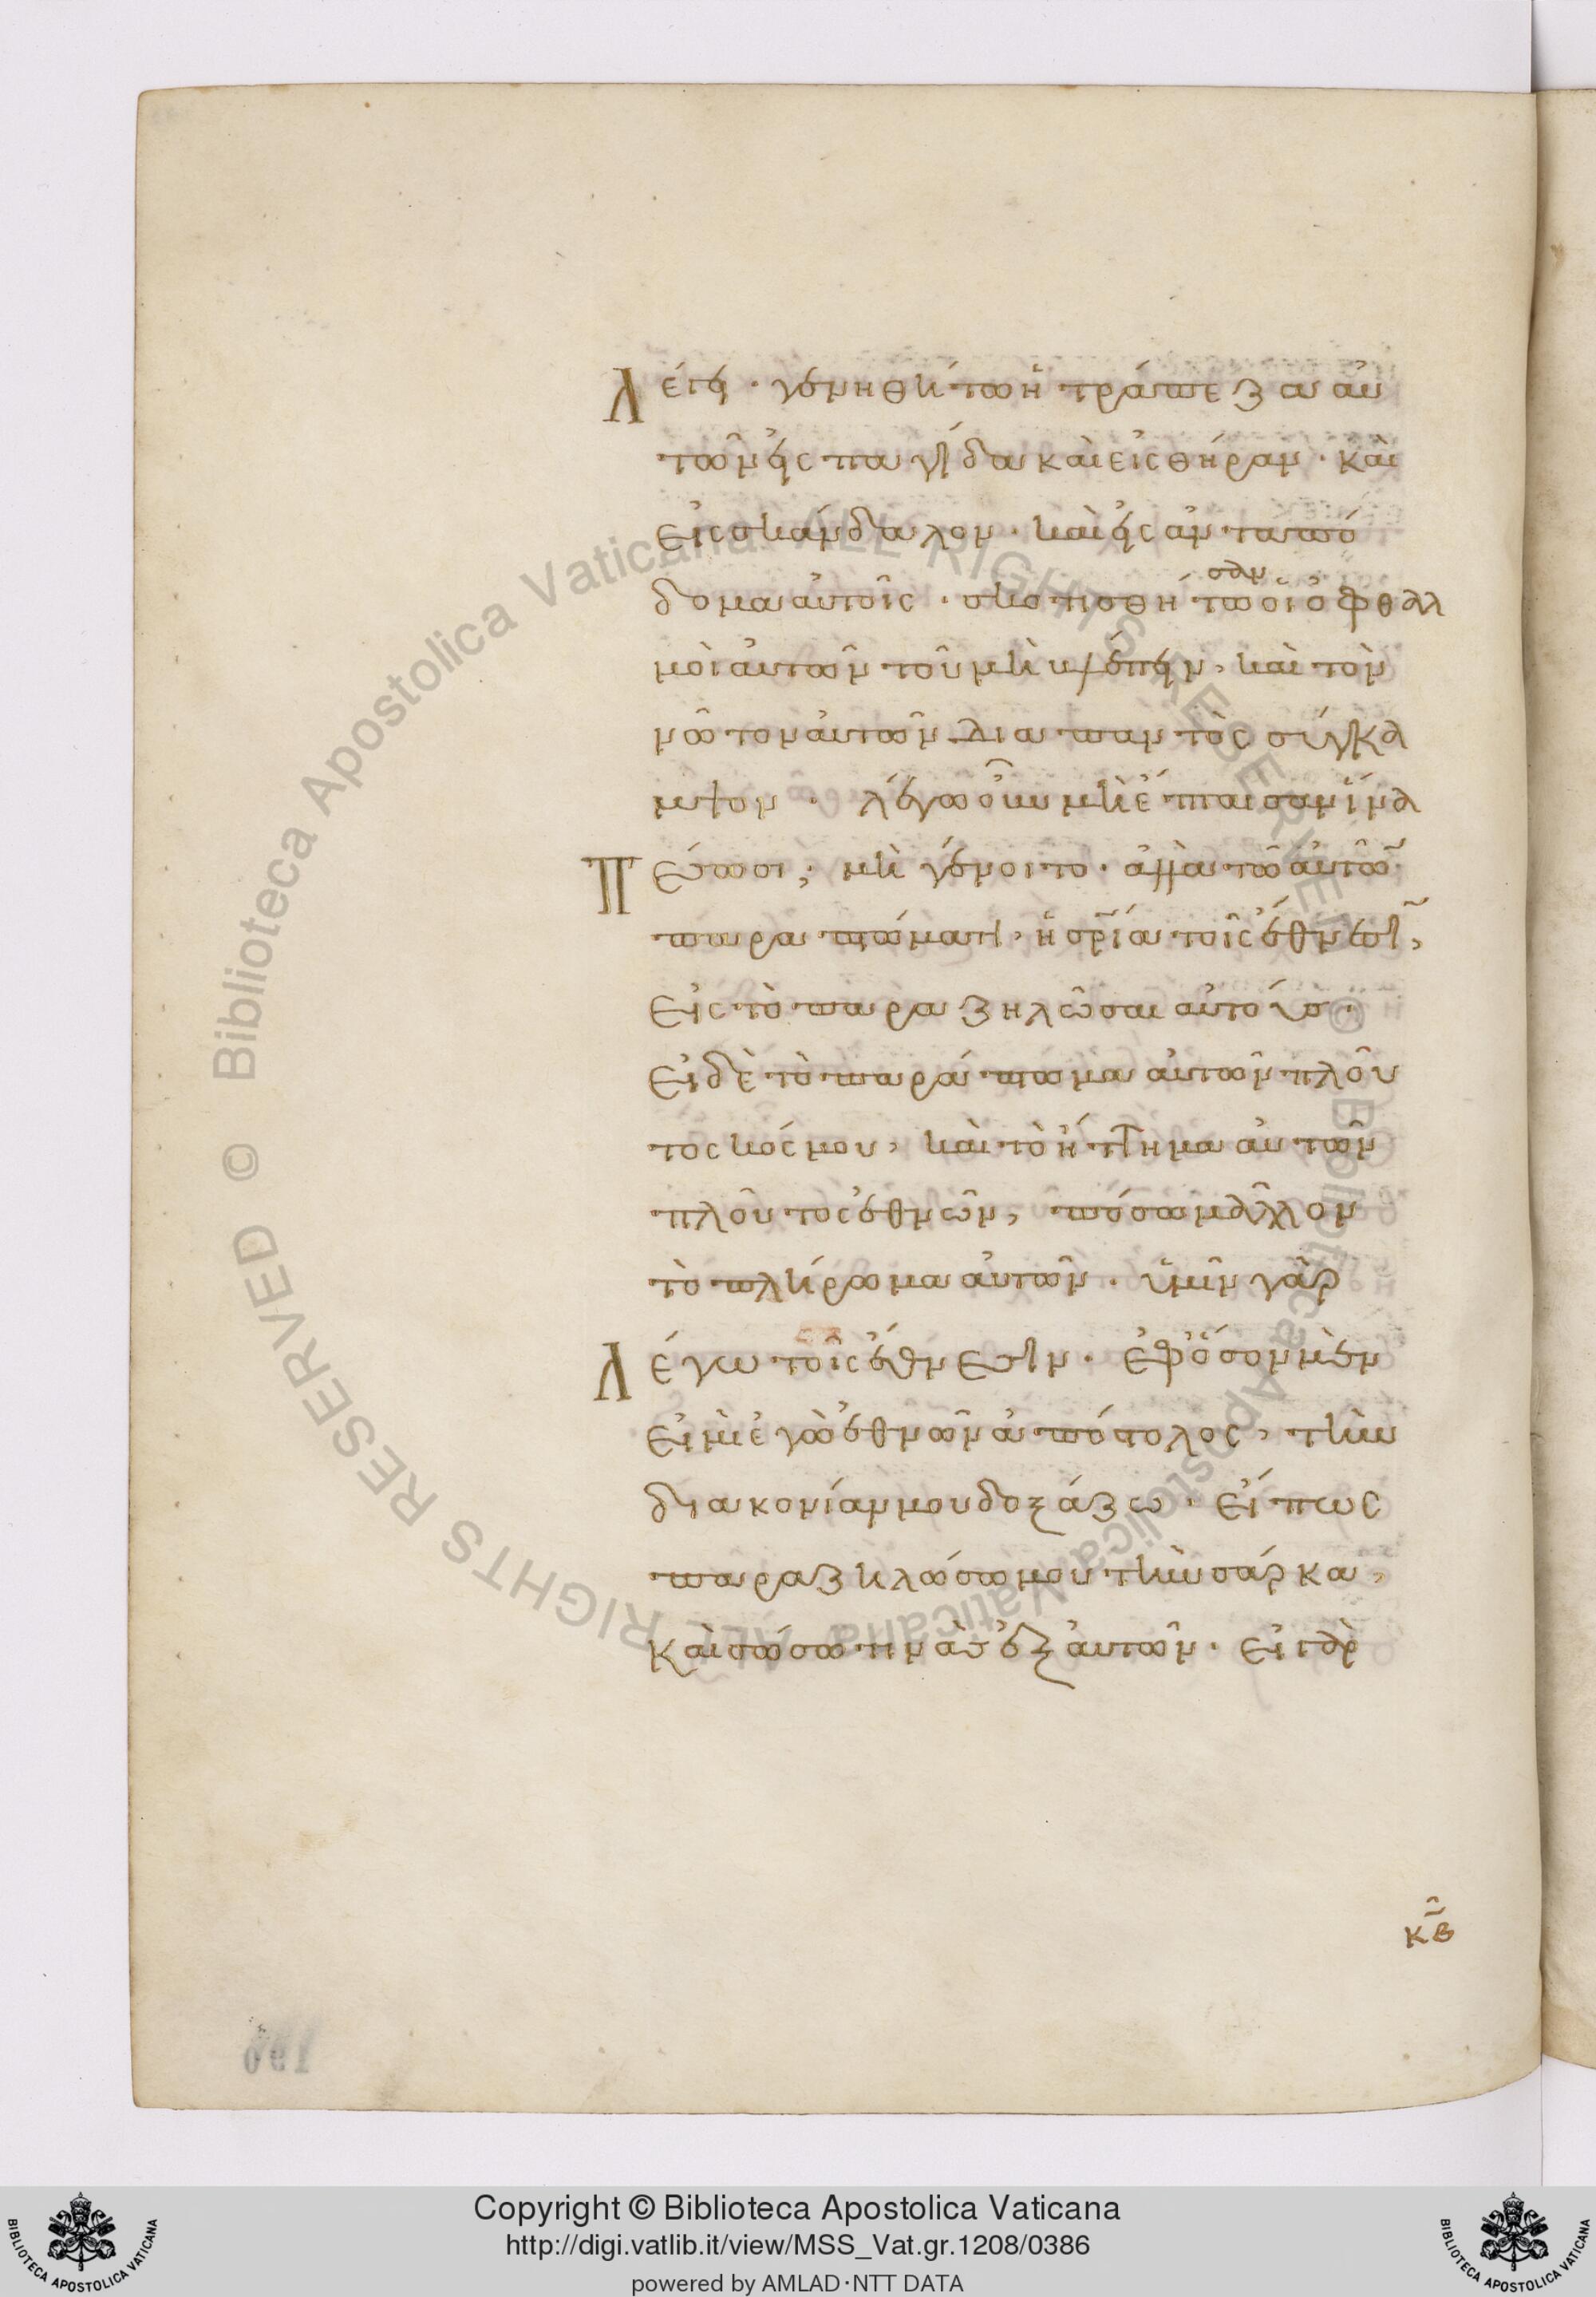 Λέγει· γενηθήτω ἡ τράπεζα αὐ
τῶν εἰς παγίδα καὶ εἰς θήραν· καὶ
εἰς σκάνδαλον· καὶ εἰς ἀνταπό
δομα αὐτοῖς· σκοτισθήτωσαν οἱ ὀφθαλ
μοὶ αὐτῶν τοῦ μὴ βλέπειν, καὶ τὸν
νῶτον αὐτῶν διαπαντὸς σύγκα
μψον· λέγω οὖν μὴ ἔπταισαν ἵνα
Πέσωσι; μὴ γένοιτο· ἀλλὰ τῶ αὐτῶν
παραπτώματι, ἡ σρία τοῖς ἔθνεσι,
εἰς τὸ παραζηλῶσαι αὐτούς·
εἰ δὲ τὸ παράπτωμα αὐτῶν πλοῦ
τος κόσμου, καὶ τὸ ἥττημα αὐτῶν
πλοῦτος ἐθνῶν, πόσω μᾶλλον
τὸ πλήρωμα αὐτῶν· ὑμῖν γὰρ
Λέγω τοῖς ἔθνεσιν· ἐφ' ὅσον μὲν
εἰμὶ ἐγὼ ἐθνῶν ἀπόστολος, τὴν
διακονίαν μου δοξάζω· εἴπως
παραζηλώσω μου τὴν σάρκα,
καὶ σώσω τινὰς ἐξ αὐτῶν· εἰ γὰρ
κβ
190
Copyright © Biblioteca Apostolica Vaticana
http://digi.vatlib.it/view/MSS_Vat.gr.1208/0386
powered by AMLAD·NTT DATA
BIBLIOTECA APOSTOLICA VATICANA
BIBLIOTECA APOSTOLICA VATICANA
© Biblioteca Apostolica Vaticana ALL RIGHTS RESERVED
© Biblioteca Apostolica Vaticana ALL RIGHTS RESERVED